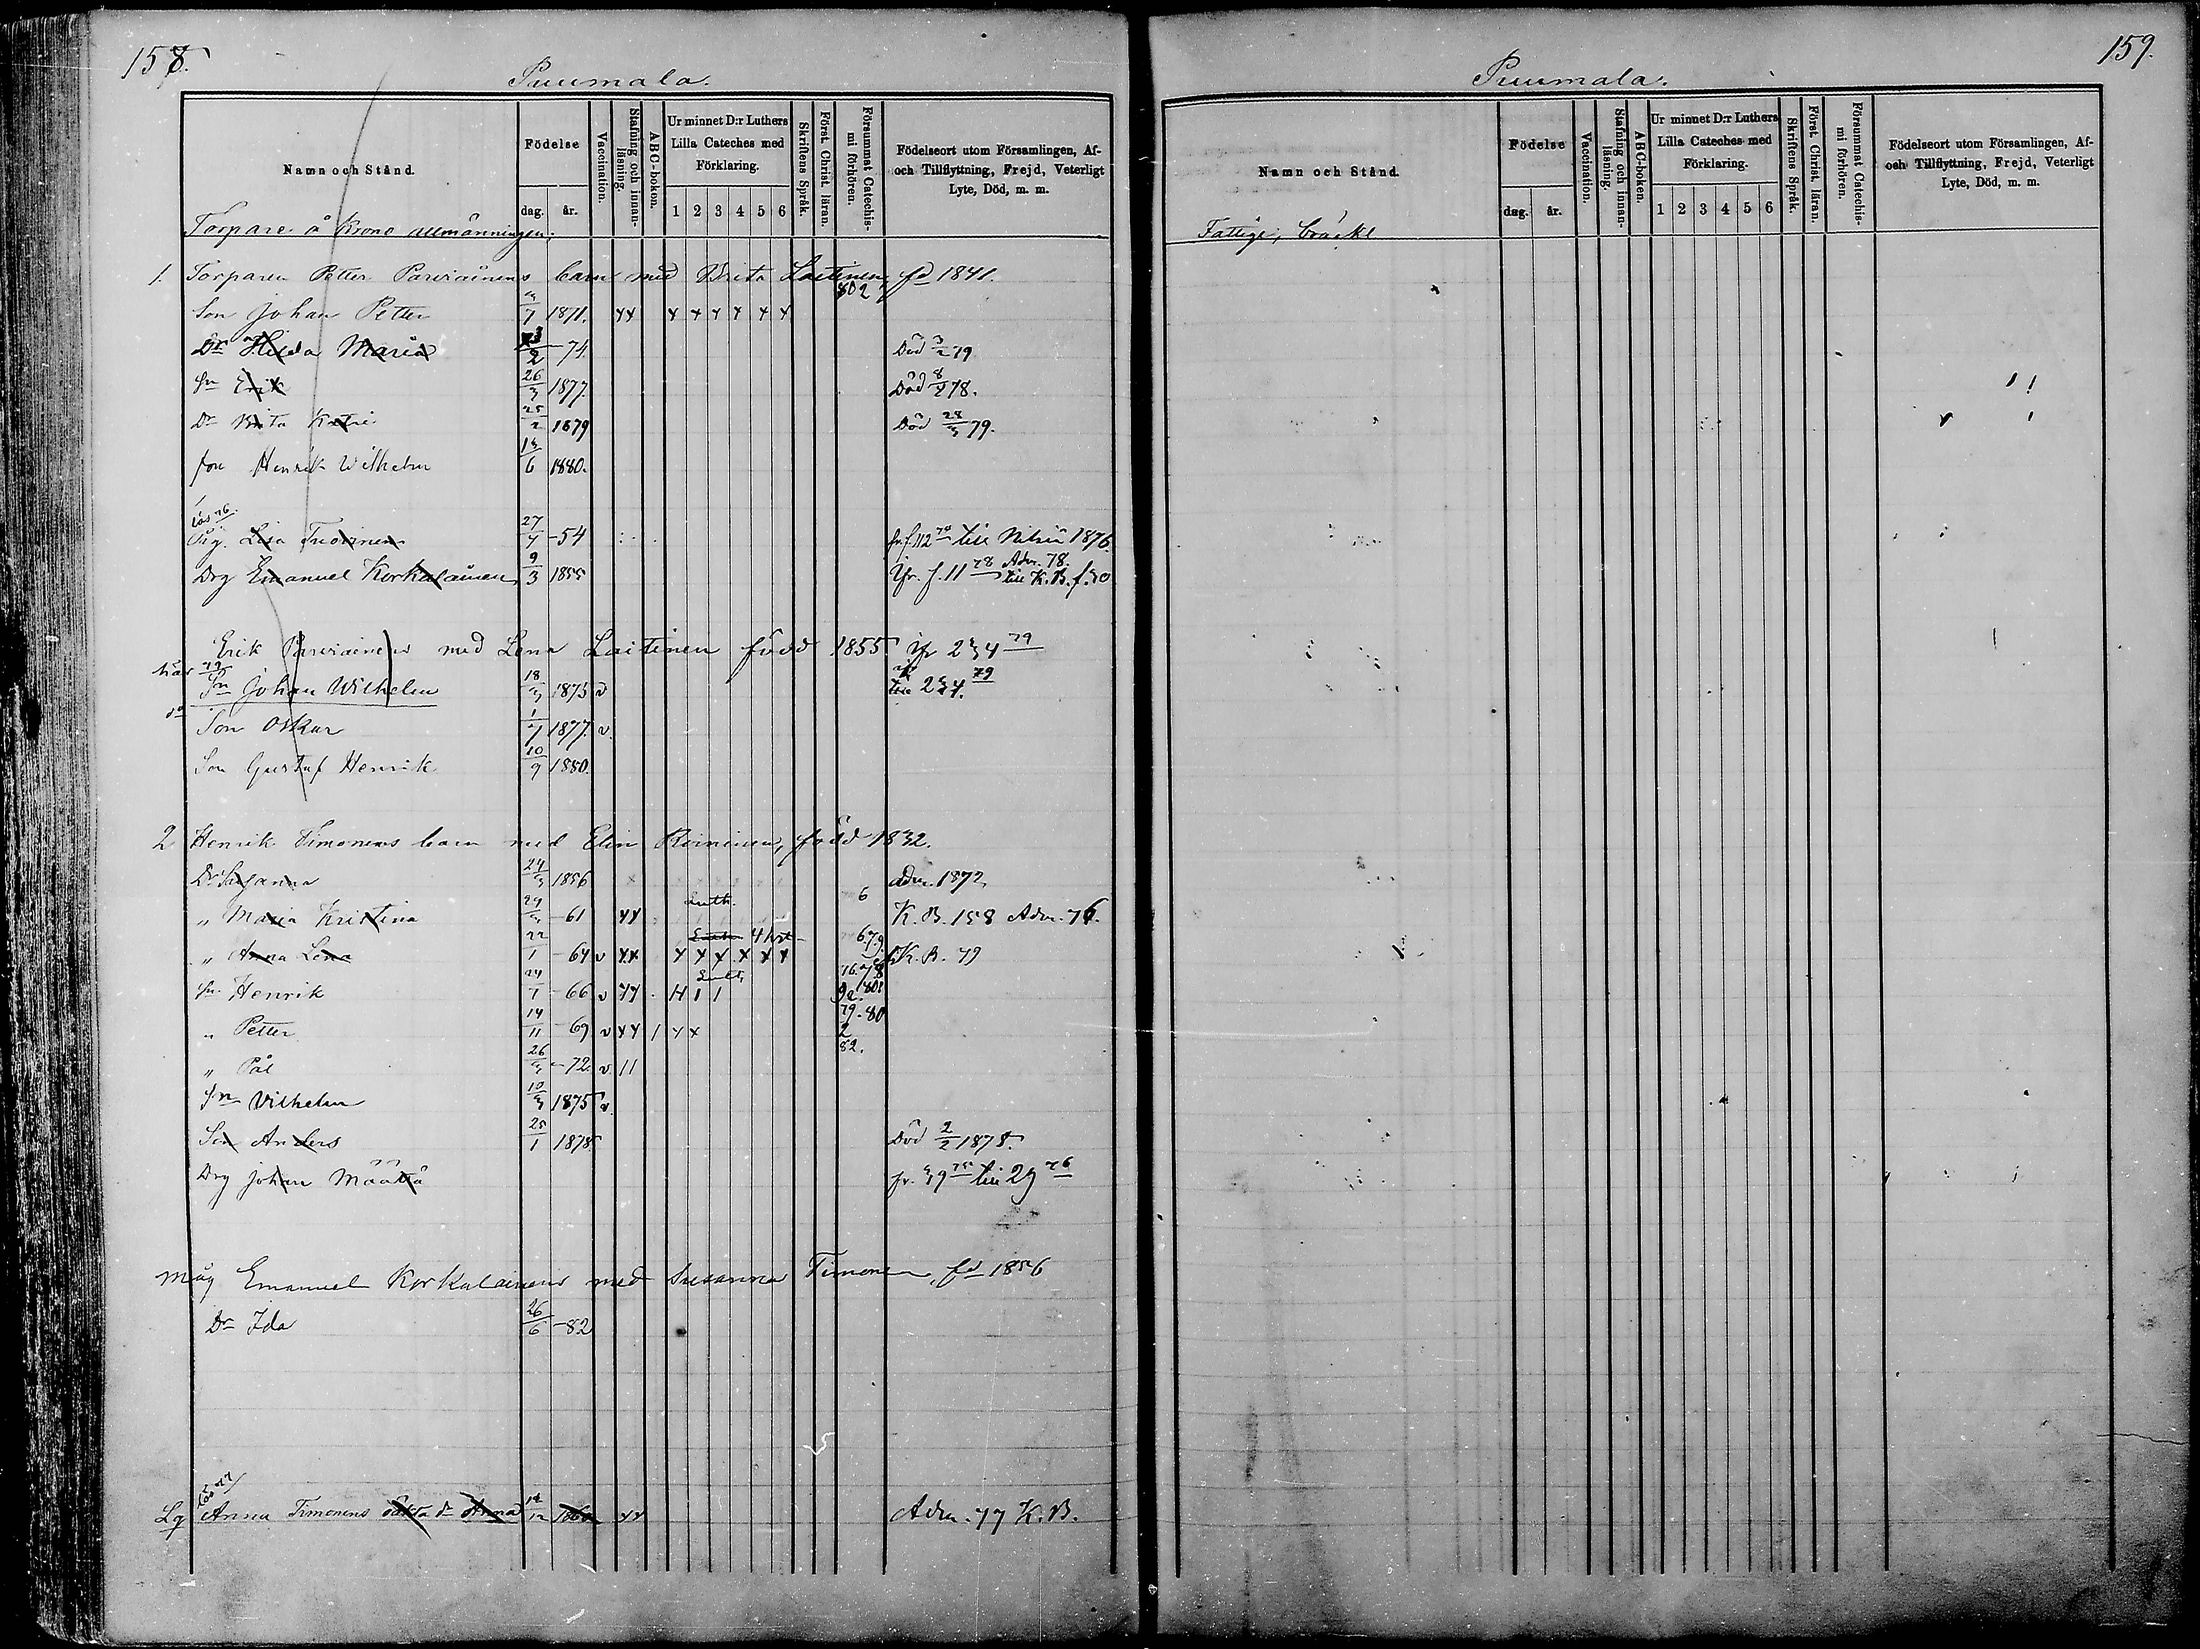 158.
Puumala.
Namn och Stånd.
Födelse
dag. år.
Vaccination.
Stafning och innanläsning.
ABC-boken.
Ur minnet D:r Luthers Lilla Cateches med Förklaring.
1 2 3 4 5 6
Skriftens Språk.
Först. Christ. läran.
Försummat Catechismi förhören.
Födelseort utom Församlingen, Af- och Tillflyttning, Frejd, Veterligt Lyte, Död, m. m.
Torpare å Krono allmänningen;
1. Torparen Petter Parviainens barn med Brita Laitinen fd 1841.
Son Johan Petter 1871. xx x x x x x x
Dr Hilda Maria 2 - 74 Död 79
Sn Erik 26/3 1877. Död 78.
Dr Brita 25/2 1879 Död 28/3 79.
son Henrik Wilhelm 13/6 1880.
Pig. Lisa Tuovinen 27 - 54 till Nilsiä 1876
Drg Emanuel Korkalainen 9/3 1855 Adm. 78. till K.B. f. 30
Erik Parviainens med Lena Laitinen född 1855 234 79
Sn Johan Wilhelm 18/3 1875 v till 234. 79
do Son Oskar 1877. v.
Son Gustaf Henrik 10/9 1880.
2 Henrik Timonens barn med Elin Roininen, född 1832.
Dr Susanna 24/3 1856 adm. 1872
" Maria Kristina 24/3 - 61 xx Luth. 6 K. B. 158 Adm. 76.
" Anna Lena 22/1 - 64 v xx x x x x x x K. B. 79
Sn Henrik 24/1 - 66 v
" Petter 14/11 - 69 v xx / x x 79-80
82.
" Pål 26/3 - 72. v. 11
Sn Vilhelm 10/3 1875 v.
Son Anders 25/1 1878 Död 2/2 1878.
Drg Johan Määttä fr. 39 75 till 29 76
Måg Emanuel Korkalainens med Susanna Timonen, fd 1856
Dr Ida 26/6 - 82
Lg Anna Timonens xx Adm. 77 K. B.
159.
Puumala.
Namn och Stånd.
Födelse
dag. år.
Vaccination.
Stafning och innanläsning.
ABC-boken.
Ur minnet D:r Luthers Lilla Cateches med Förklaring.
1 2 3 4 5 6
Skriftens Språk.
Först. Christ. läran.
Försummat Catechismi förhören.
Födelseort utom Församlingen, Af- och Tillflyttning, Frejd, Veterligt Lyte, Död, m. m.
Fattige, bräckl